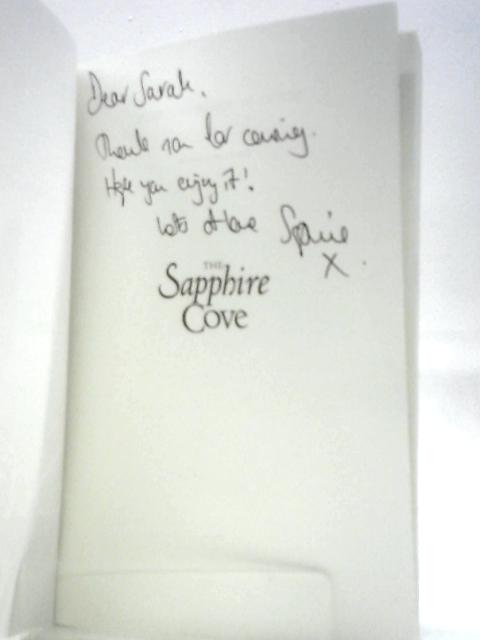 Dear Sarah,
Thank you for coming.
Hope you enjoy it!
Lots of love
X
THE
Sapphire
Cove